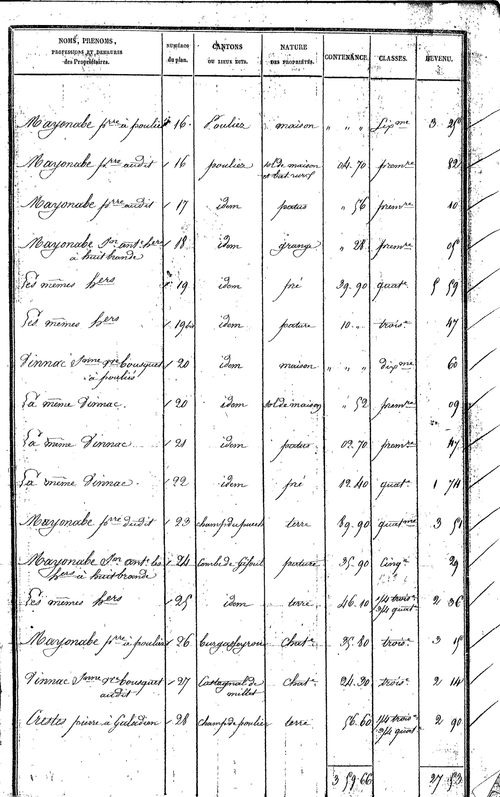 NOMS, PRENOMS, PROFESSIONS ET DEMEURES des Propriétaires. | NUMÉRO du plan. | CANTONS OU LIEUX DITS. | NATURE DES PROPRIÉTÉS. | CONTENANCE. | CLASSES. | REVENU.
Mayonabe pre à pouliès 16. Pouliès maison " " " dixme 3. 25
Mayonabe pre audit 16 pouliès sol de maison et bat. rural 04.70 premre 82
Mayonabe pre audit 17 idem patus " 56 premre 10
Mayonabe Jn ant. hers 18 idem grange " 28 premre 05
à huitbrande
Les mêmes hers 19 idem pré 29.90 quat. 5 59
Les mêmes hers 19 bis idem pature 10. " trois. 47
Vinnac Jeanne ve bousquet 20 idem maison " " " dixme 60
à pouliès
La même Vinnac. 20 idem sol de maison " 52 premre 09
La même Vinnac 21 idem patus 02.70 premre 47
La même Vinnac. 22 idem pré 12.40 quat. 1 74
Mayonabe pre dudit 23 champ du puech terre 89.90 quatme 3 51
Mayonabe Jn ant. les 24 Combe de pature 35.90 cinq. 29
hers à huitbrande
Les mêmes hers 25 idem terre 46.10 1/4 trois. 3/4 quat. 2 36
Mayonabe pre à pouliès 26 chat. 35.80 trois. 3 15
Vinnac Jeanne ve bousquet 27 Castagnal de millet chat. 24.30 trois. 2 14
audit
Crestes pierre à 28 champ de pouliès terre 56.60 1/4 trois. 3/4 quat. 2 90
3 59.66 27 53